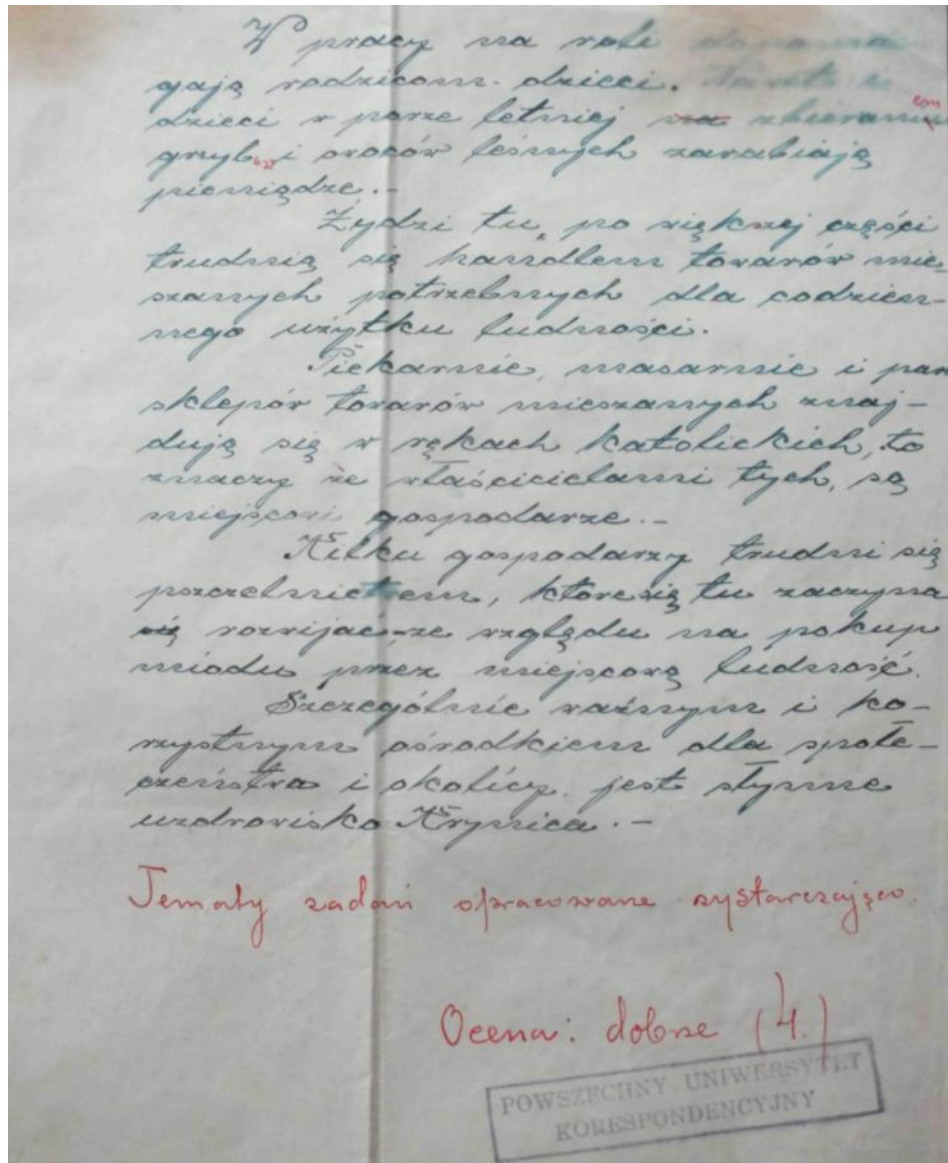 W pracy na roli dopoma-
gają rodzicom dzieci. i
dzieci w porze letniej na zbieraniem
grzybów i owoców leśnych zarabiają
pieniądze.-
Żydzi tu, po większej części
trudnią się handlem towarów mie-
szanych potrzebnych dla codzien-
nego użytku ludności.
Piekarnie, masarnie i parę
sklepów towarów mieszanych znaj-
dują się w rękach katolickich, to
znaczy że właścicielami tych, są
miejscowi gospodarze.-
Kilku gospodarzy trudni się
pszczelnictwem, które się tu zaczyna
się rozwijac-ze względu na pokup
miodu przez miejscową ludność.
Szczególnie ważnym i ko-
rzystnym ośrodkiem dla społe-
czeństwa i okolicy. jest słynne
uzdrowisko Krynica.-
Tematy zadań opracowane wystarczająco.
Ocena: dobrze (4.)
POWSZECHNY UNIWERSYTET
KORESPONDENCYJNY